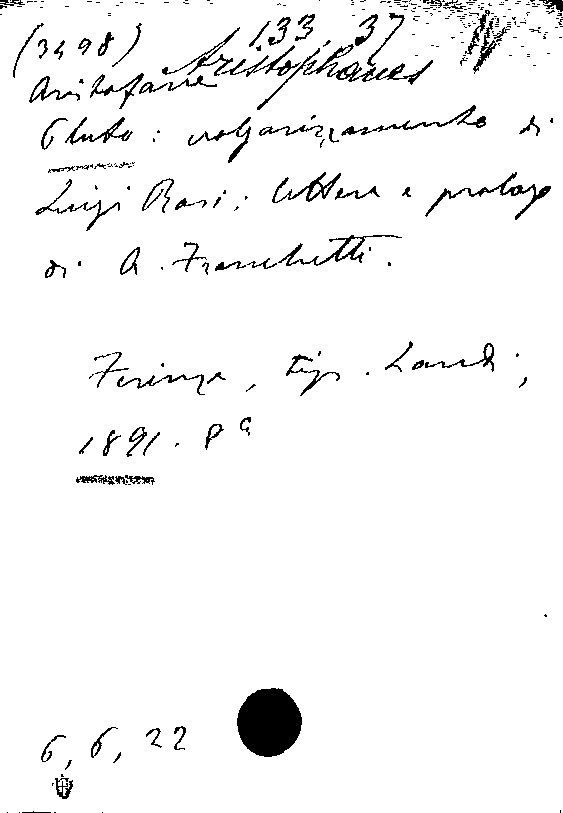 (3498) 133, 37 N
Aristofane Aristophanes
Pluto : volgarizzamento di
Luigi Rasi; lettera e prologo
di A. Franchetti.
Firenze, tip. Landi,
1891. 8ª
6, 6, 22